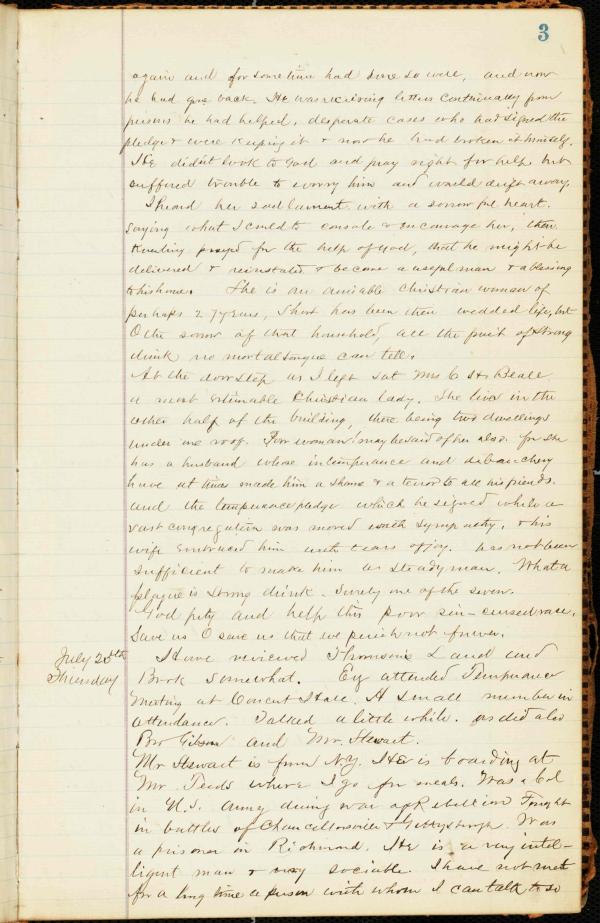 3
again and for sometime had done so well, and now
he had gone back. He was receiving letters continually from
persons he had helped, desperate cases who had signed the
pledge & were keeping it & now he had broken it himself.
He didn't look to God and pray right for help but
suffered trouble to worry him and would drift away.
I heard her sad lament with a sorrowful heart.
Saying what I could to console & encourage her, then
Kneeling prayed for the help of God, that he might be
delivered & reinstated & become a useful man & a blessing
to his home. She is an amiable Christian woman of
perhaps 27 years, Short has been their wedded life, but
O the sorrow of that household, all the fruit of strong
drink no mortal tongue can tell.
At the door step as I left sat Mrs C H Beale
a most estimable Christian lady. She lives in the
other half of the building, there being two dwellings
under one roof. Poor woman! may be said of her also for she
has a husband whose intemperance and debauchery
have at times made him a shame & a terror to all his friends.
and the temperance pledge which he signed while a
vast congregation was moved with sympathy, & his
wife embraced him with tears of joy. has not been
sufficient to make him a steady man. What a
plague is strong drink. Surely one of the seven.
God pity and help this poor sin-cursed race.
Save us O save us that we perish not
July 25th Thursday
I have reviewed Thomson's Land and
Book somewhat. Eg attended Temperance
Meeting at Concert Hall. A small number in
attendance. Talked a little while. as did also
Bro Gibson and Mr. Stewart.
Mr Stewart is from N.Y. He is boarding at
Mr. where I go for meals. Was a Col
in U.S. Army during war of Rebellion Fought
in battles of Chancellorsville & Gettysburgh. Was
a prisoner in Richmond. He is a very intel-
ligent man & very sociable. I have not met
for a long time a person with whom I can talk to so